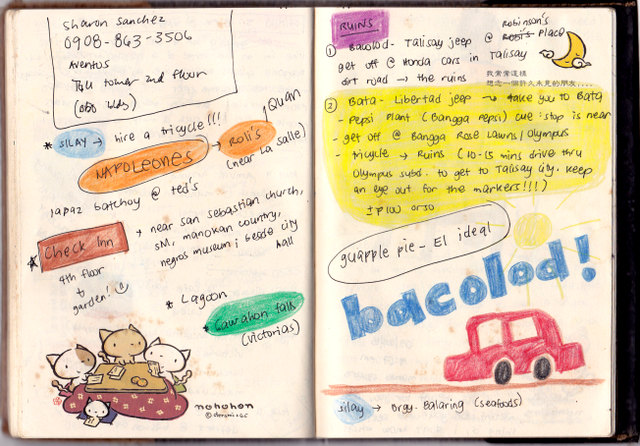 sharon sanchez
0908-863-3506
Aventos
tower 2nd floor
* SILAY → hire a tricycle!!!
Quan
NAPOLEONES → Roli's
(near La Salle)
lapaz batchoy @ ted's
* Check Inn → near san sebastian church,
SM, manokan country,
negros museum; beside city
hall
4th floor
garden!
* Lagoon
* Gawahon falls
(victorias)
nohohon
RUINS
Robinson's
① Bacolod - Talisay jeep @ Place
get off @ Honda cars in Talisay
dirt road → the ruins
我常常這樣
想念一個許久未見的朋友....
② Bata - Libertad jeep → take you to Bata
- Pepsi Plant (Bangga Pepsi) cue: stop is near
- get off @ Bangga Rose Lawns / Olympus
- tricycle → Ruins (10-15 mins drive thru
Olympus subd. to get to Talisay city. keep
an eye out for the markers!!!)
± P100 or 50
guapple pie - El ideal
bacolod!
silay → Brgy. Balaring (seafoods)